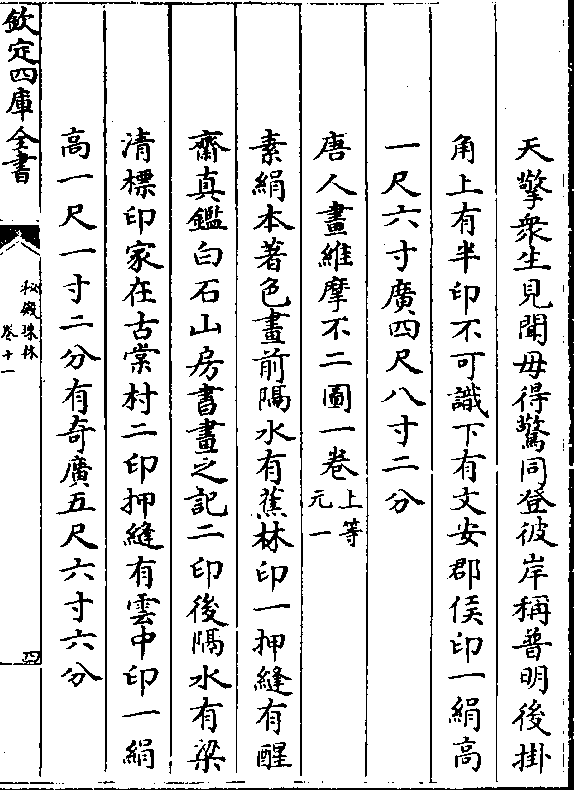 天擎衆生見聞毋得驚同登彼岸稱普明後掛
角上有半印不可識下有文安郡侯印一絹高
一尺六寸廣四尺八寸二分
唐人畫維摩不二圖一卷上等元一
素絹本著色畫前隔水有蕉林印一押縫有醒
齋真鑑白石山房書畫之記二印後隔水有梁
清標印家在古棠村二印押縫有雲中印一絹
高一尺一寸二分有奇廣五尺六寸六分
欽定四庫全書
秘殿珠林
卷十一
四